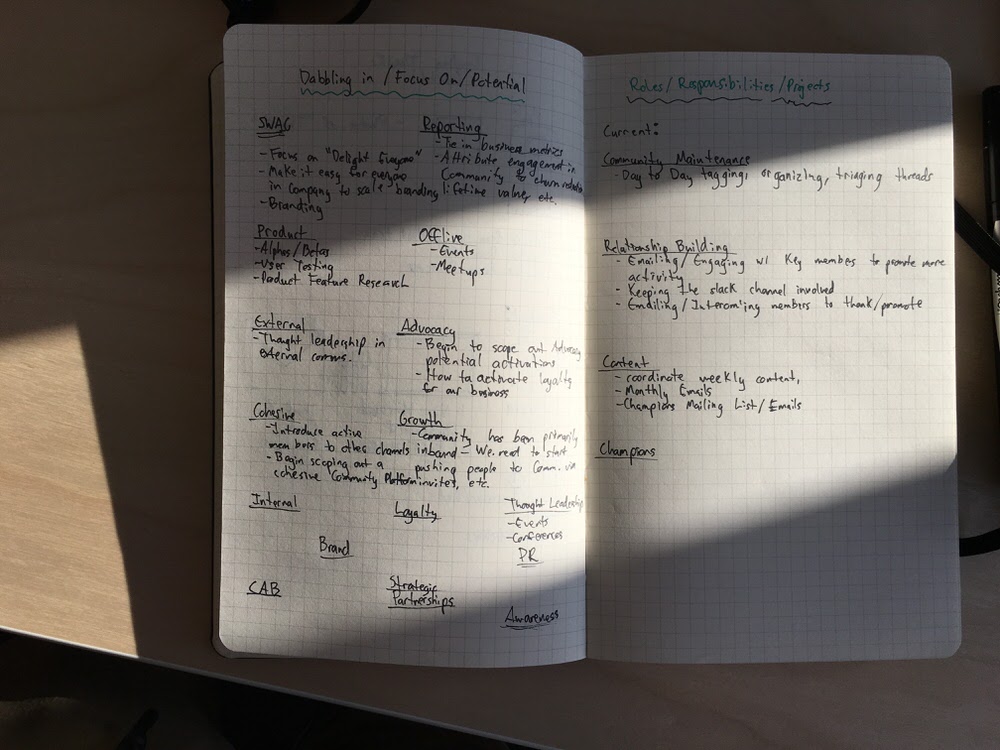 Dabbling in / Focus On / Potential
SWAG
- Focus on "Delight Everyone"
- Make it easy for everyone
in Company to scale branding
- Branding
Reporting
- Tie in business metrics
- Attribute engagement in
Community to churn reduction
lifetime value, etc.
Product
- Alphas/Betas
- User Testing
- Product Feature Research
Offline
- Events
- Meetups
External
- Thought leadership in
external comms.
Advocacy
- Begin to scope out Advocacy
potential activations
- How to activate loyalty
for our business
Cohesive
- Introduce active
members to other channels
- Begin scoping out a
cohesive Community Platform
Growth
- Community has been primarily
inbound - We need to start
pushing people to Comm. via
invites, etc.
Internal
Loyalty
Thought Leadership
- Events
- Conferences
Brand
PR
CAB
Strategic
Partnerships
Awareness
Roles / Responsibilities / Projects
Current:
Community Maintenance
- Day to Day tagging, organizing, triaging threads
Relationship Building
- Emailing/Engaging w/ Key members to promote more
activity
- Keeping the slack channel involved
- Emailing / Intercom'ing members to thank/promote
Content
- coordinate weekly content,
- Monthly Emails
- Champions Mailing List/Emails
Champions